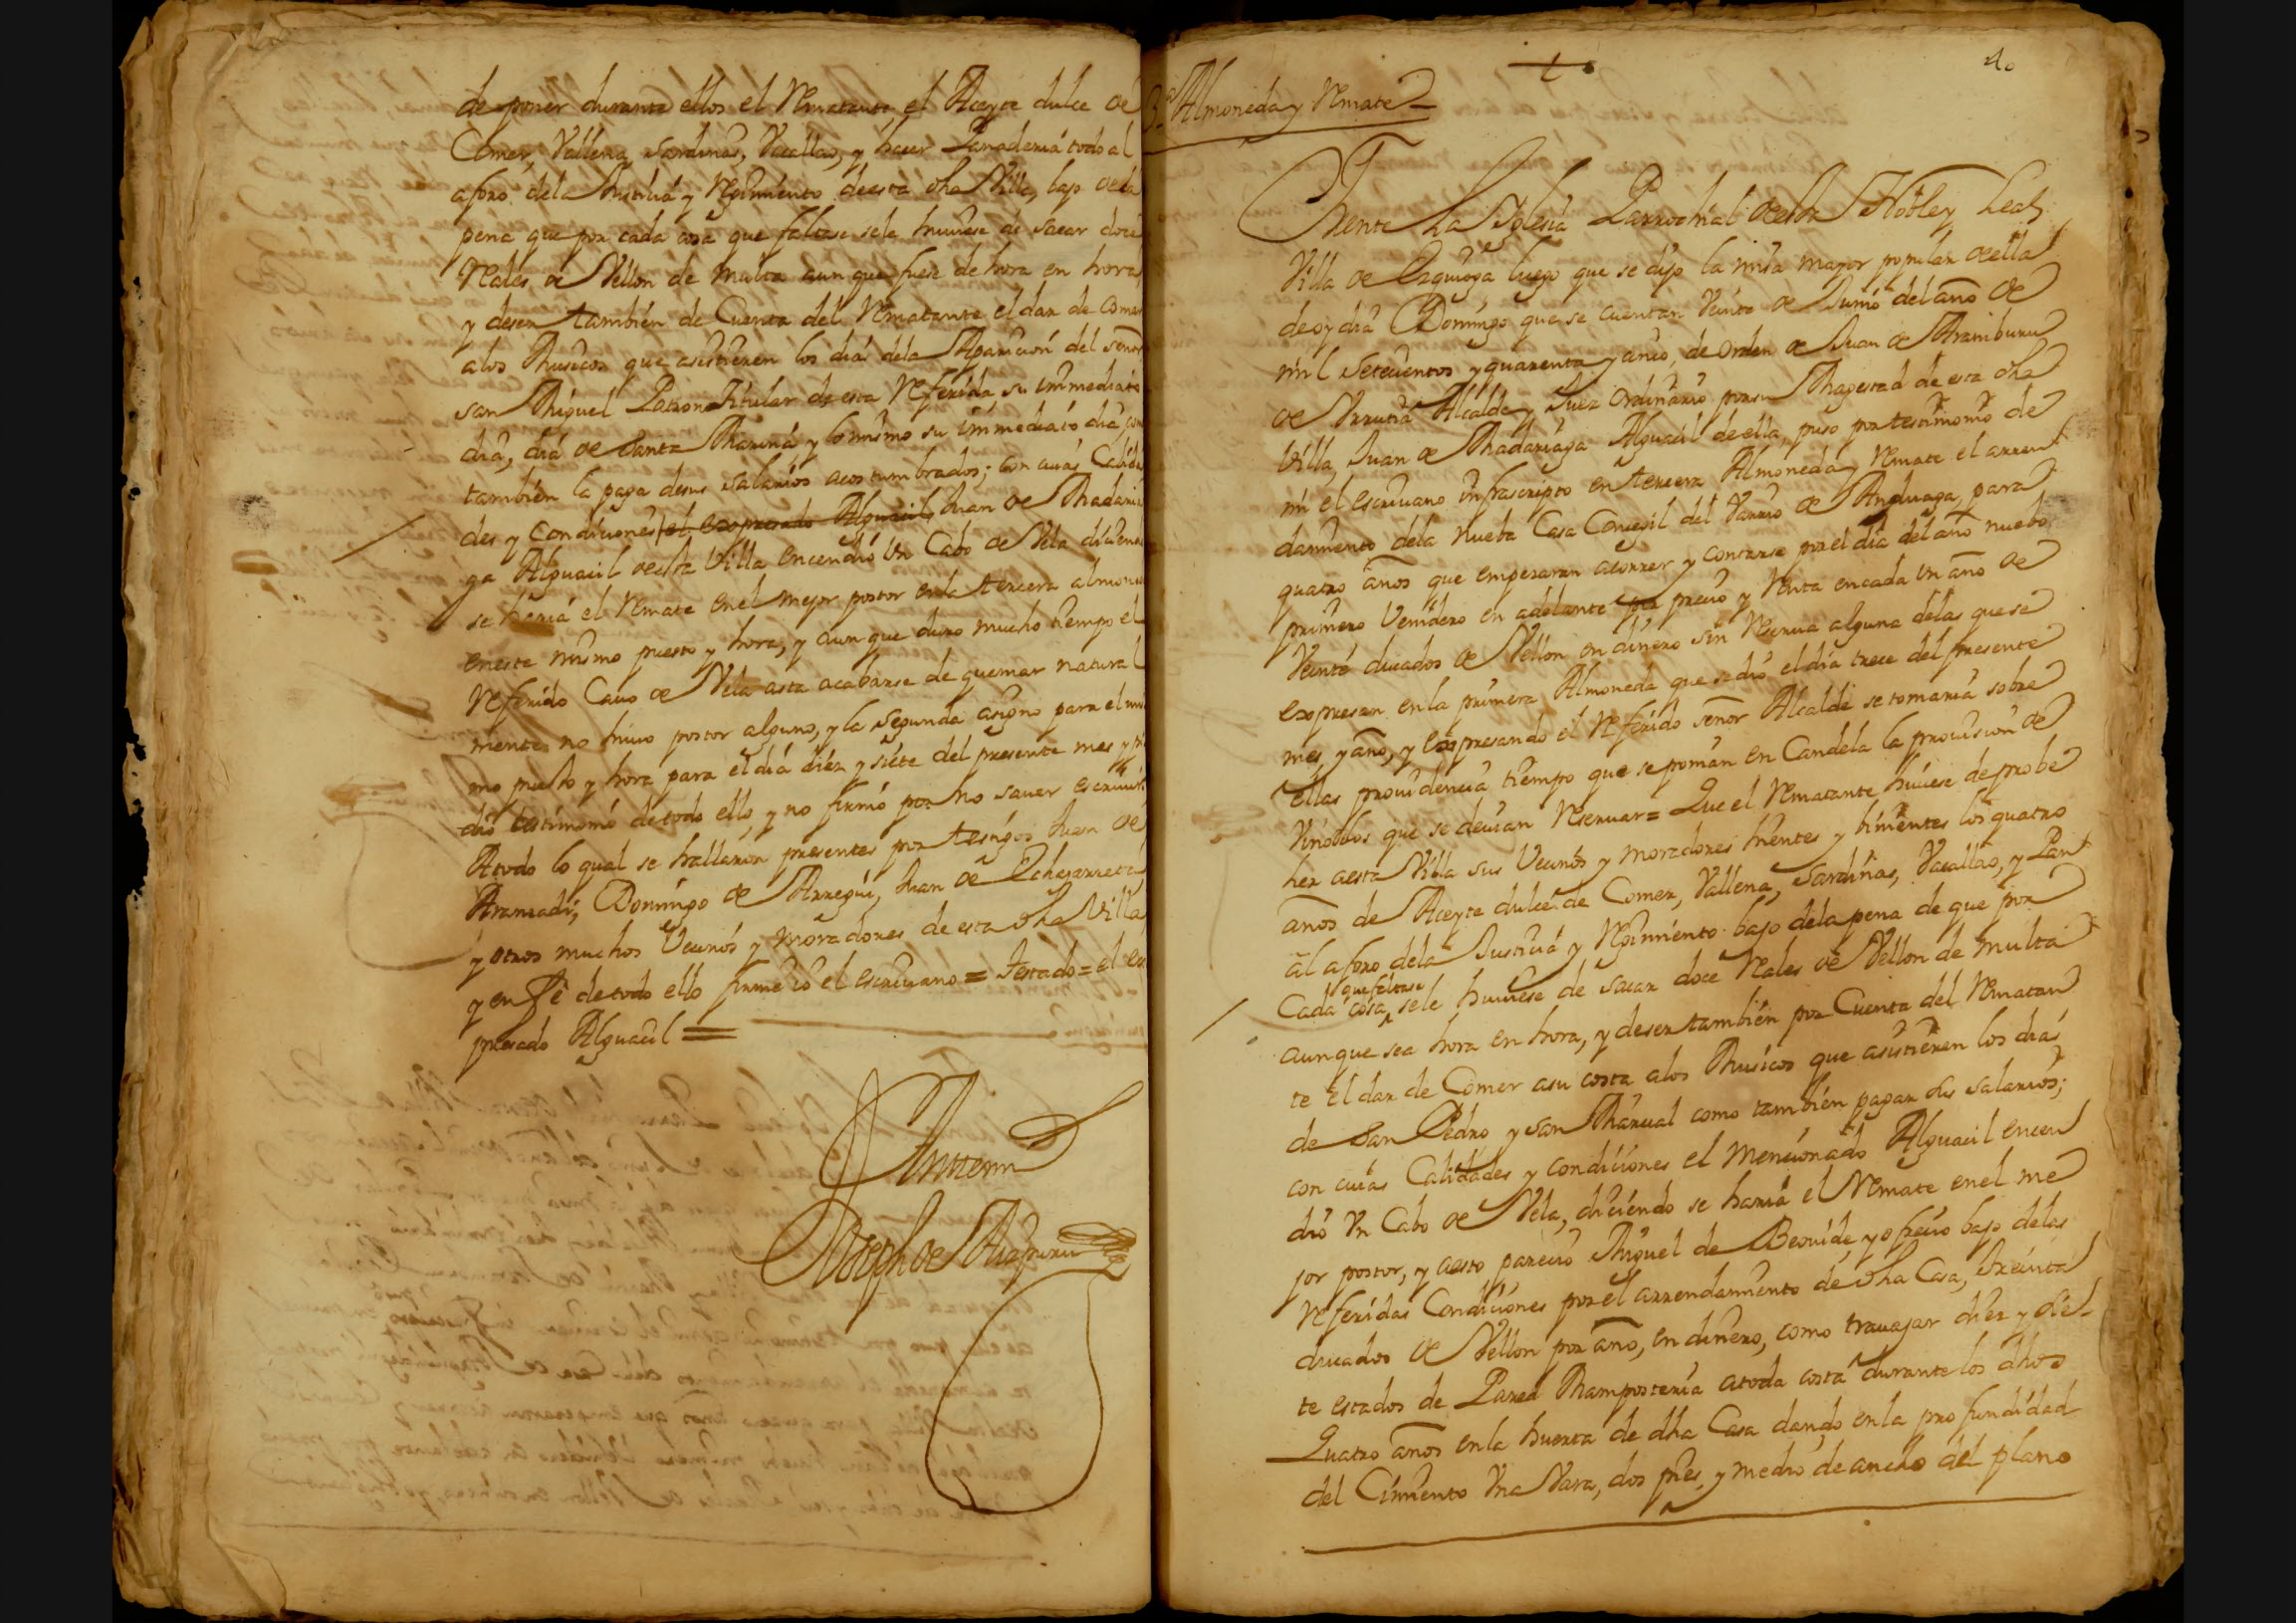 de poner durante ellos el Rematante, el Aceyte dulce de
Comer, Vallena, sardinas, Vacallao, y hacer Panaderia todo al
aforo dela Justicia y Regimiento de esta dha Villa, bajo dela
pena que por cada cosa que faltase sele huuiese de sacar doce
Reales de Vellon de multa aun que fuese de hora en hora,
y deser tambien de Cuenta del Rematante el dar de Comer
alos Musicos que asistieren los dias dela Aparicion del señor
san Miguel Patron Titular de esta Referida su immediato
dia, dia de santa Marina, y lo mismo su immediato dia, como
tambien la paga desus salarios acostumbrados; con cuias Calida
des y Condiciones el expresado Alguacil Juan de Madaria
ga Alguacil de esta Villa encendio Vn Cabo de Vela diciendo
se haria el Remate en el mejor postor enla tercera almone
eneste mismo puesto y hora, y aun que duro mucho tiempo el
Referido Cauo de Vela asta acabarse de quemar natural
mente, no huuo postor alguno, y la segunda asigno para el mis
mo puesto y hora para el dia diez y siete del presente mes y pi
dio testimonio de todo ello, y no firmó por no sauer escriuir,
Atodo lo qual se hallaron presentes por testigos Juan de
Aramadi, Domingo de Arregui, Juan de Echezarreta,
y otros muchos Vecinos y moradores de esta dha Villa,
y en fe de todo ello firme Io el escriuano = Testado = el ex
presado Alguacil =
Ante mi
Joseph de Aizpuru
40
3.ª Almoneda y Remate
Frente La Iglesia Parrochial de esta Noble y Leal
Villa de Ezquioga luego que se dijo la misa mayor popular de ella
de oy dia Domingo que se cuentan Veinte de Junio del año de
mil setecientos y quarenta y cinco, de orden de Juan de Aramburu
de Urrutia Alcalde y Juez ordinario por su Magestad de esta dha
Villa, Juan de Madariaga Alguacil de ella, puso por testimonio de
mi el escriuano infrascripto en tercera Almoneda y Remate el arren
damiento dela Nueba Casa Concegil del Varrio de Anduaga, para
quatro años que empezaran acorrer y contarse por el dia del año nuebo
primero Venidero en adelante por precio y Renta encada Vn año de
Veinte ducados de Vellon en dinero sin Reserua alguna delas que se
expresan en la primera Almoneda que se dio el dia trece del presente
mes, y año, y expresando el Referido señor Alcalde se tomaria sobre
ellas prouidencia tiempo que se ponian en Candela la prouision de
Vinos los que se deuian Reseruar = Que el Rematante huuiese de probe
her aesta Villa sus Vecinos y moradores hientes y binientes los quatro
años de Aceyte dulce de Comer, Vallena, sardinas, Vacallao, y Pan
al aforo dela Justicia y Regimiento bajo dela pena de que por
que faltase
Cada cosa sele huuiese de sacar doce Reales de Vellon de multa
aunque sea hora en hora, y deser tambien por Cuenta del Rematan
te el dar de Comer asu costa alos Musicos que asistieren los dias
de san Pedro y san Marcial como tambien pagar sus salarios;
con cuias Calidades y condiciones el mencionado Alguacil encen
dio Vn Cabo de Vela, diciendo se haria el Remate en el me
jor postor, y aesto parecio Miguel de Beouide, y ofrecio bajo delas
Referidas Condiciones por el arrendamiento de dha Casa, treinta
ducados de Vellon por año, en dinero, como trauajar diez y sie-
te estados de Pared Mamposteria atoda costa durante los dhos
Quatro años en la huerta de dha Casa dando en la profundidad
del Cimiento Vna Vara, dos pies, y medio de ancho del plano